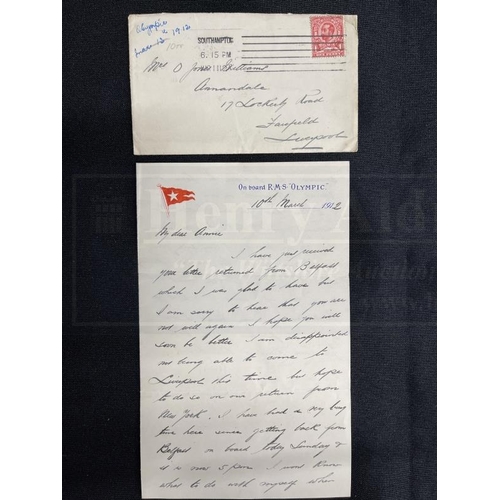 Olympic
March 1912
SOUTHAMPTON
6.15 PM
Mrs O Jones Williams
Annandale
17 Lockerby Road
Fairfield
Liverpool
On board R.M.S. "OLYMPIC."
10th March 1912
My dear Annie
I have just received
your letter returned from Belfast
which I was glad to have but
I am sorry to hear that you are
not well again I hope you will
soon be better I am disappointed
not being able to come to
Liverpool this time but hope
to do so on our return from
New York. I have had a very busy
time here since getting back from
Belfast on board today Sunday &
it is over 5 pm I wont know
what to do with myself when
Henry Ald